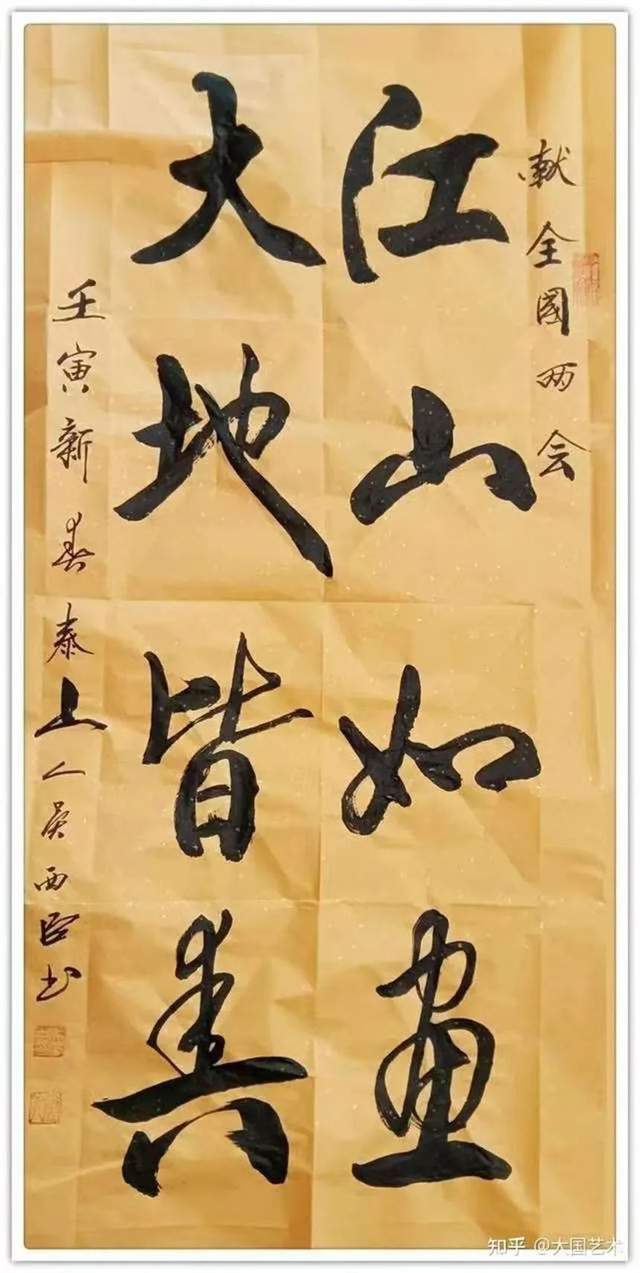 献全国两会
江山如画
大地皆春
壬寅新春泰山人吴西臣书
知乎 @大国艺术